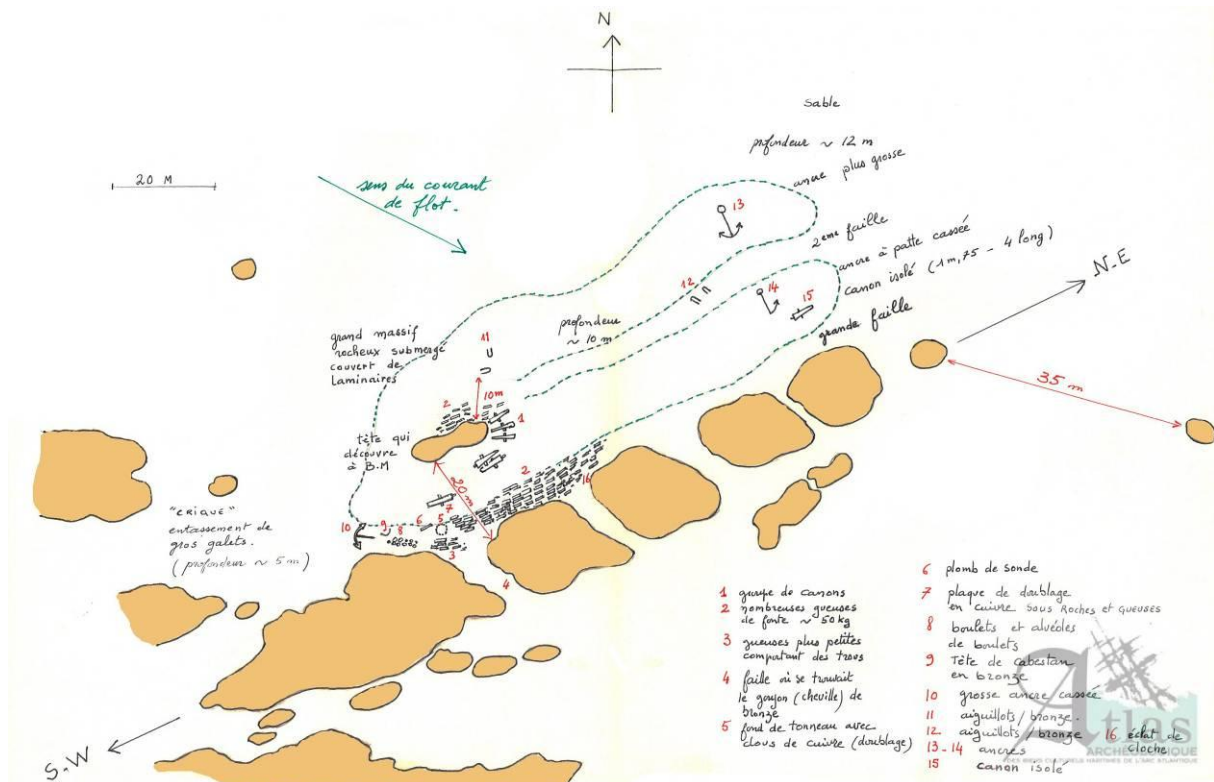 N
sable
profondeur ~ 12 m
ancre plus grosse
20 M
sens du courant
de flot.
13
2eme faille
ancre à patte cassée
canon isolé (1m,75 - 4 long)
grande faille
N.E
12
14
15
profondeur
~ 10 m
grand massif
rocheux submergé
couvert de
Laminaires
11
10m
2
1
35 m
tête qui
découvre
à B.M
20 m
2
16
"CRIQUE"
entassement de
gros galets.
(profondeur ~ 5 m)
10
9
8
6
5
7
3
4
S.W
1 groupe de canons
2 nombreuses gueuses
de fonte ~ 50 kg
3 gueuses plus petites
comportant des trous
4 faille où se trouvait
le goujon (cheville) de
bronze
5 fond de tonneau avec
clous de cuivre (doublage)
6 plomb de sonde
7 plaque de doublage
en cuivre sous Roches et Gueuses
8 boulets et alvéoles
de boulets
9 Tête de cabestan
en bronze
10 grosse ancre cassée
11 aiguillots / bronze.
12 aiguillots / bronze
13-14 ancres
15 canon isolé
16 éclat de
cloche
Atlas
ARCHÉOLOGIQUE
DES BIENS CULTURELS MARITIMES DE L'ARC ATLANTIQUE